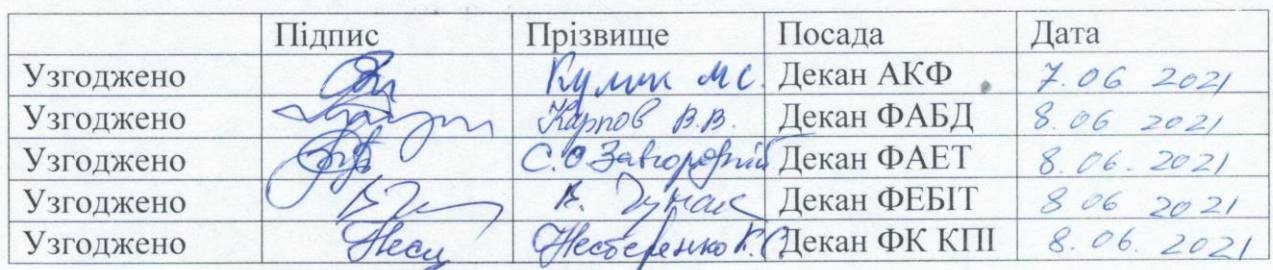 Підпис Прізвище Посада Дата
Узгоджено Кулик М.С. Декан АКФ 7.06 2021
Узгоджено Карпов В.В. Декан ФАБД 8.06 2021
Узгоджено С.О Завгородній Декан ФАЕТ 8.06. 2021
Узгоджено В. Чумак Декан ФЕБІТ 8 06 2021
Узгоджено Нестеренко К.С Декан ФК КПІ 8.06. 2021